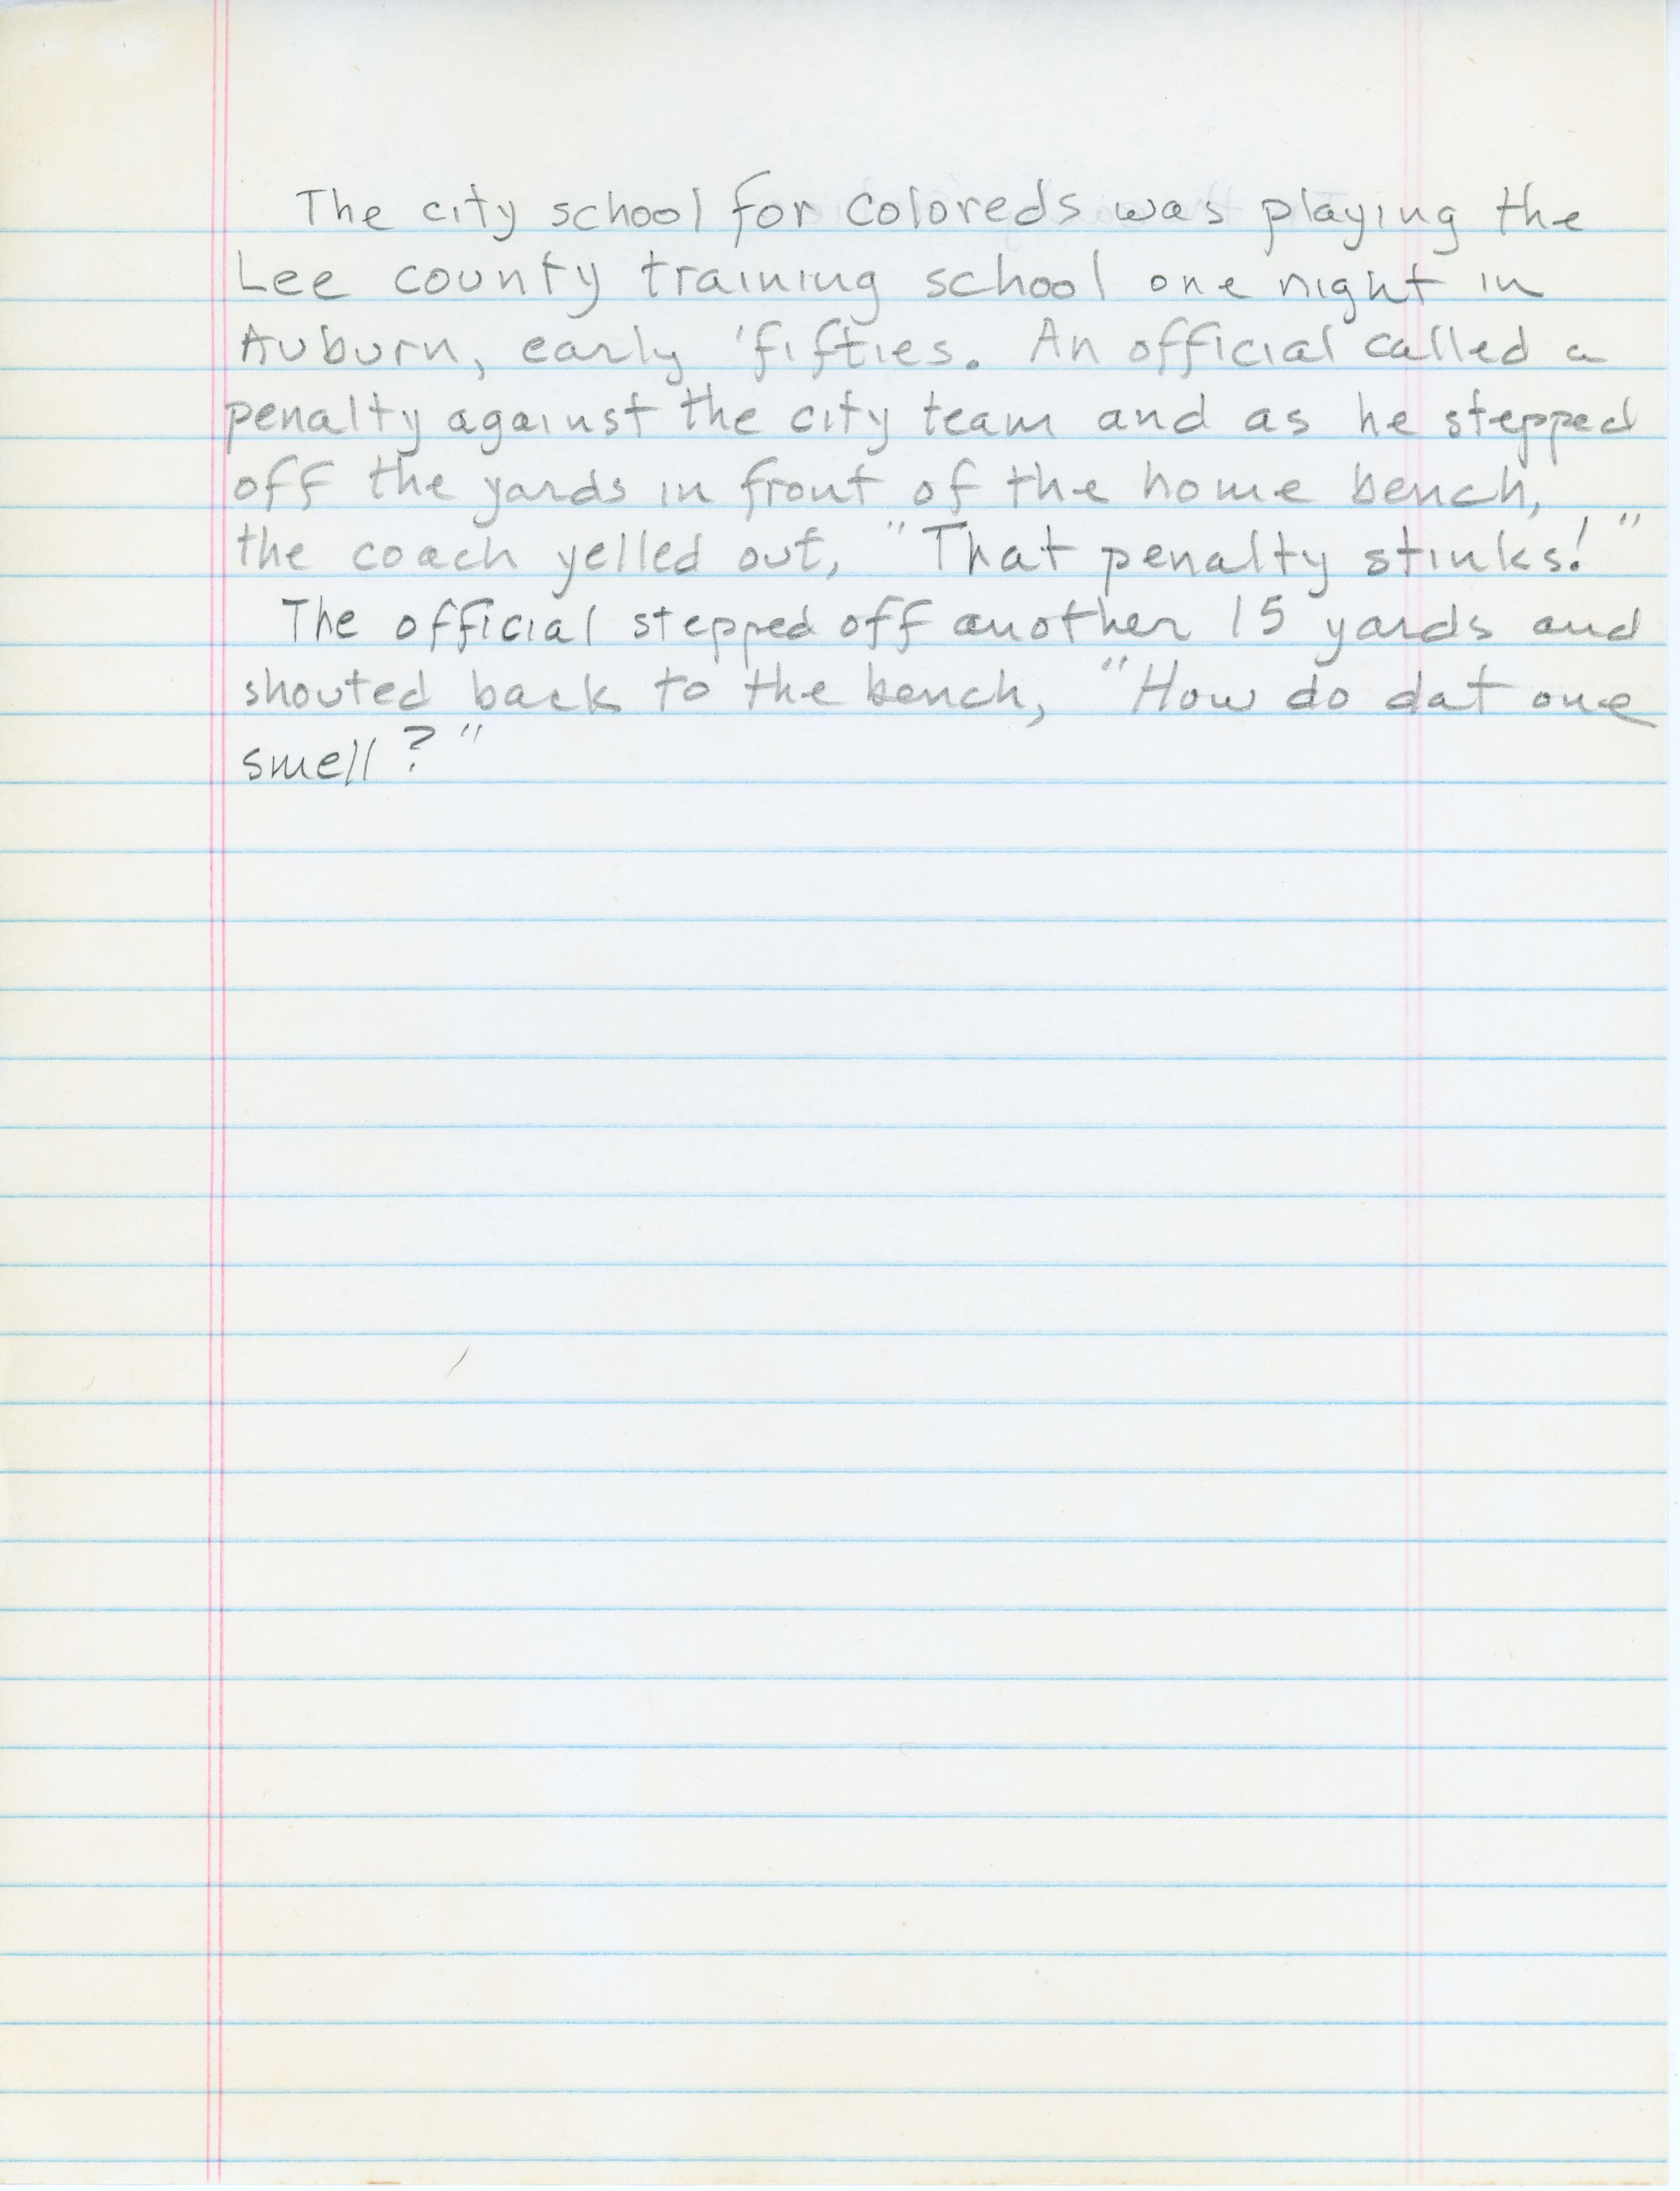 The city school for coloreds was playing the
Lee county training school one night in
Auburn, early 'fifties. An official called a
penalty against the city team and as he stepped
off the yards in front of the home bench,
the coach yelled out, "That penalty stinks!"
The official stepped off another 15 yards and
shouted back to the bench, "How do dat one
smell?"